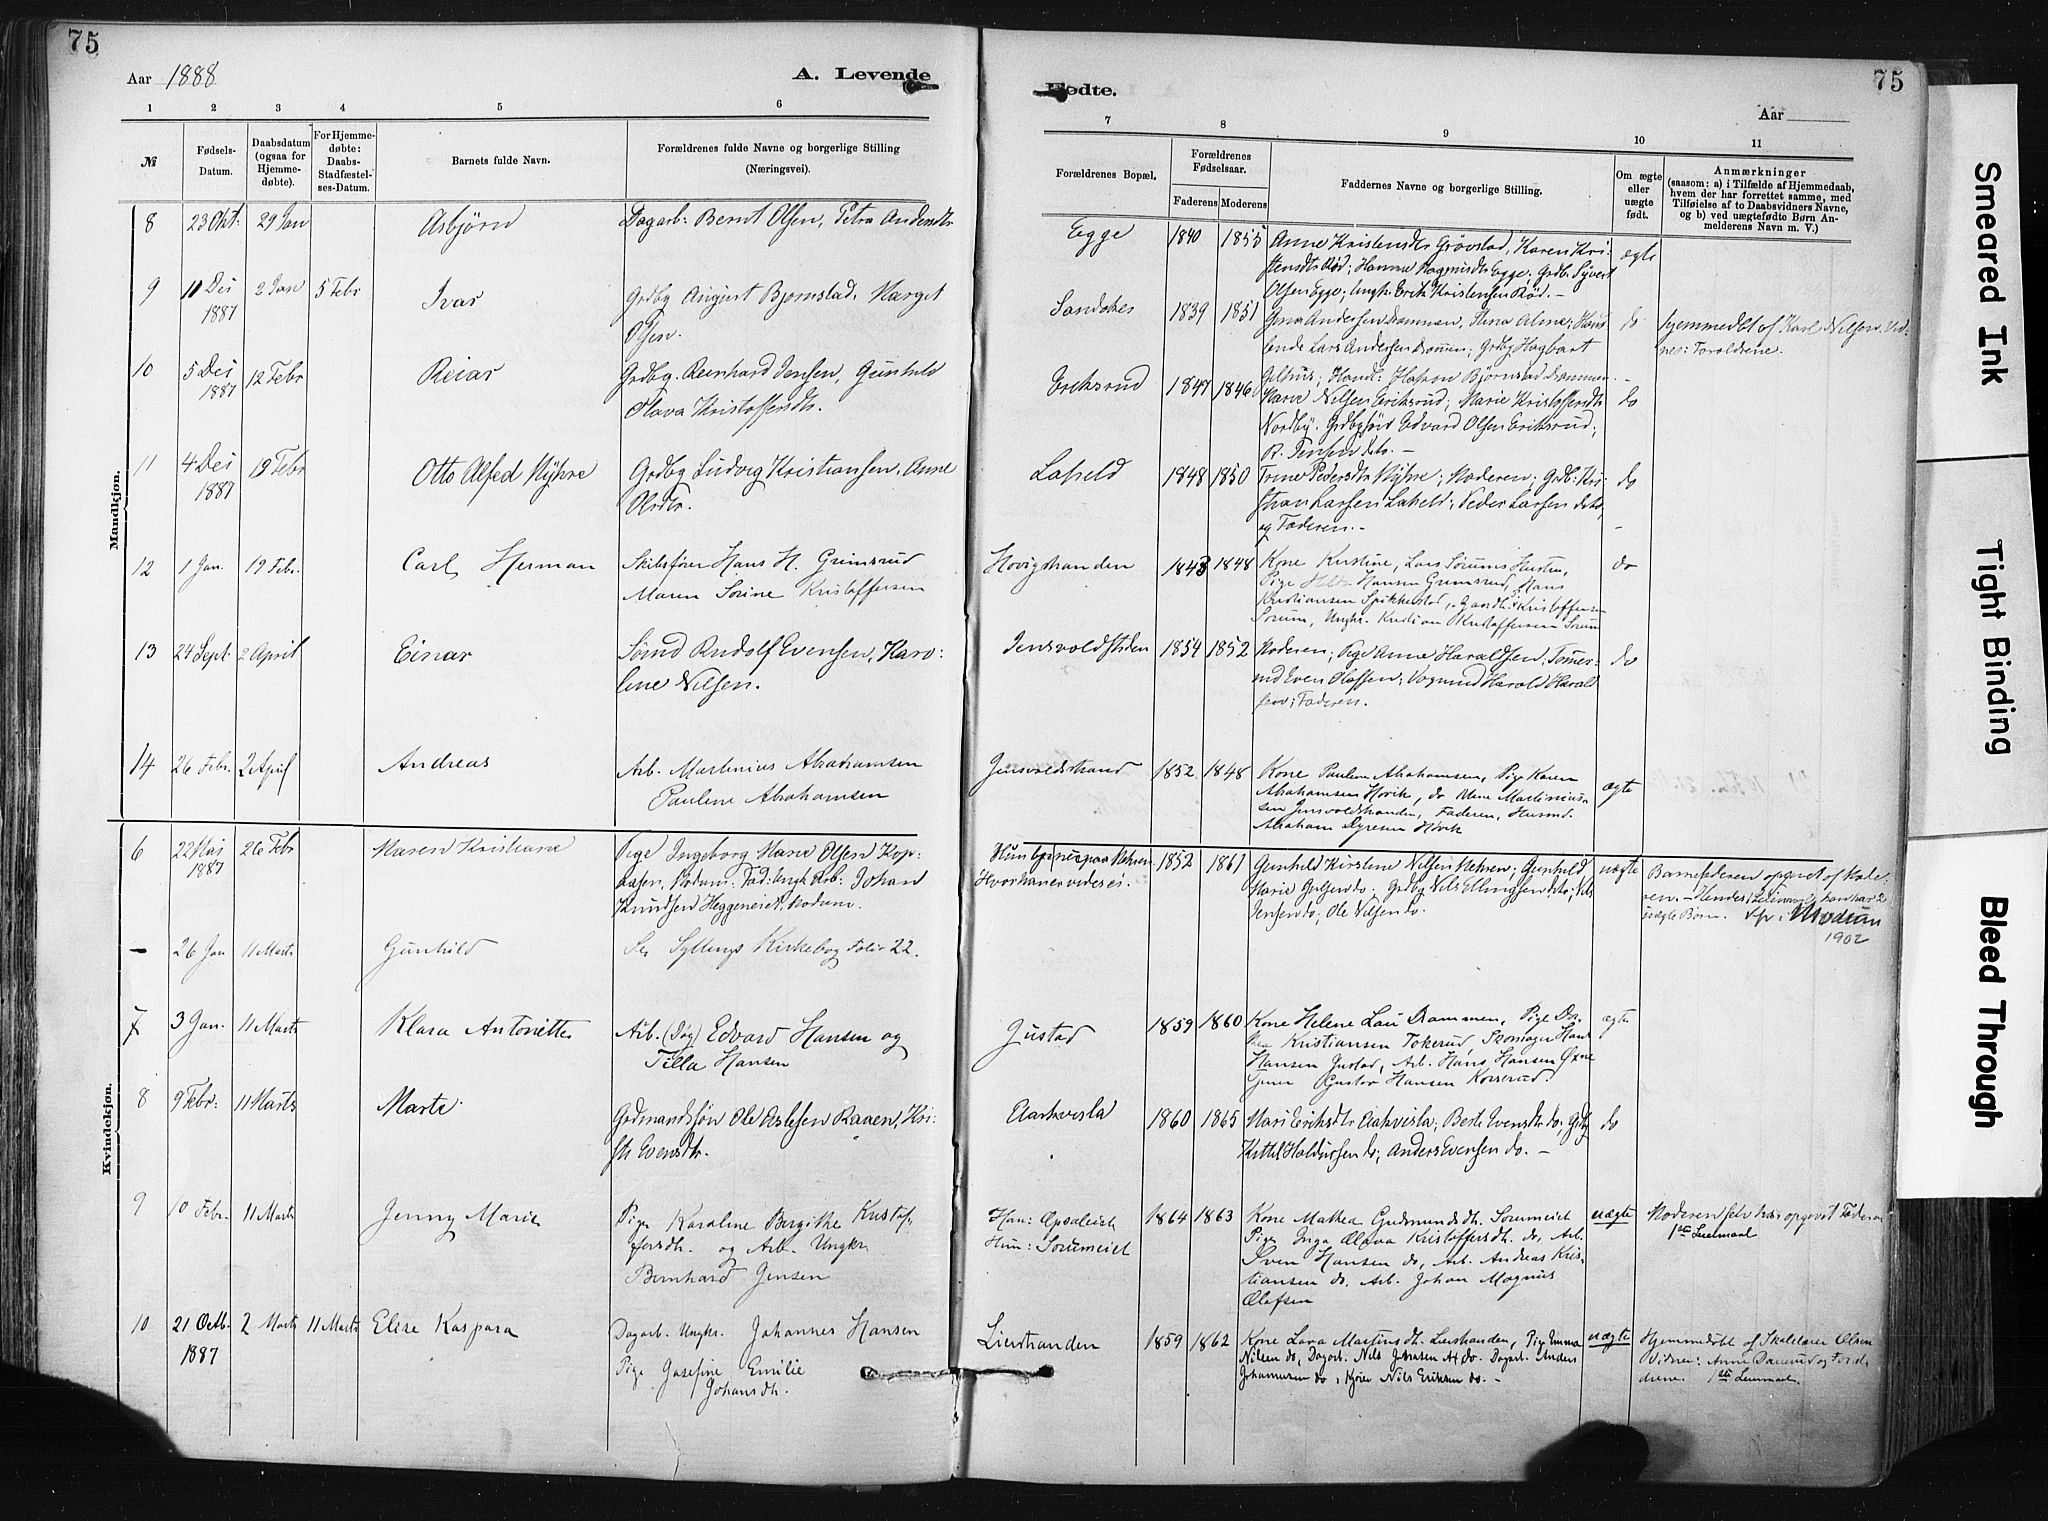 75
Aar 1888
A. Levende
1 2 3 4 5 6
№
Fødsels-Datum.
Daabsdatum (ogsaa for Hjemmedøbte).
For Hjemmedøbte: Daabs-Stadfæstelses-Datum.
Barnets fulde Navn.
Forældrenes fulde Navne og borgerlige Stilling
(Næringsvei).
Mandkjøn.
8 23 Okt: 29 Jan Asbjørn Dagarb: Bernt Olsen, Petra Andersdtr
9 10 Dei 2 Jan 5 Febr Ivar Grdbr August Bjørnstad, Marget
1887 Olsen.
10 5 Dei 12 Febr Reiar Grdbr. Reinhard Jensen, Gunhild
1887 Olava Kristoffersdtr.
11 4 Dei 19 Febr Otto Alfed Myhre Grdbr Ludvig Kristiansen, Anne
1887 Olsdtr.
12 1 Jan. 19 Febr. Carl Herman Skibsfører Hans H. Grimsrud
Maren Sorine Kristoffersen
13 24 Sept. 2 April Einar Sømd Rudolf Evensen, Karo-
line Nilsen.
14 26 Febr. 2 April Andreas Arb. Martinius Abrahamsen
Pauline Abrahamsen
Kvindekjøn.
6 22 Mai 26 Febr Maren Kristiane Pige Ingeborg Marie Olsen Kop-
1887 Modum: Fad: Ungk Arb: Johan
Knudsen Heggeneiet, Modum.
— 26 Jan 11 Marts Gunhild Se Syllings Kirkebog Folio 22.
7 3 Jan. 11 Marts Klara Antonette Arb. (Dag) Edvard Hansen og
Tilla Hansen
8 9 Febr: 11 Marts Marte Grdmandssøn Ole Aslesen Raaen, Kri-
Evensdtr.
9 10 Febr. 11 Marts Jenny Marie Pige Karoline Bergithe Kristof-
fersdtr. og Arb. Ungkr.
Bernhard Jensen
10 21 Octb. 2 Marts 11 Marts Elise Kaspara Dagarb. Ungkr. Johannes Hansen
1887 Pige Josefine Emilie
Johansdtr.
75
Fødte.
Aar
7 8 9 10 11
Forældrenes Bopæl.
Forældrenes Fødselsaar.
Faderens Moderens
Faddernes Navne og borgerlige Stilling.
Om ægte eller uægte født.
Anmærkninger
(saasom: a) i Tilfælde af Hjemmedaab,
hvem der har forrettet samme, med
Tilføielse af to Daabsvidners Navne,
og b) ved uægtefødte Børn An-
melderens Navn m. V.)
Egge 1840 1855 Anne Kristensdtr Grøvstad, Karen Kri- ægte
stensdtr Rød; Hanna Egge; Grdbr Syvert
Olsen Egge; Ungk. Erik Kristensen Rød.—
Sandaker 1839 1851 Andersen Drammen, do hjemmedbt af Karl Nilsen. Vid-
Lars Andersen Drammen; Grdbr Hagbart nes: Forældrene.
Eriksrud 1847 1846 Gilhus; Handl: Hakon Bjørnstad Drammen.—
Marie Nilsen Eriksrud; Marie Kristoffersdtr do
Nordby. Edvard Olsen Eriksrud;
R. Jensen dets.—
Laheld 1848 1850 Pedersdtr Myhre; Moderen; Grdbr: Kri- do
stian Larsen Laheld; Peder Larsen dets;
og Faderen.—
Hovigstranden 1843 1848 Kone Kirstine, Lars Sørums Hustru, do
Pige Hansen Grimsrud, Hans
Kristiansen Spikkestad, Kristoffersen
Sørum, Ungkr. Kristian Kristoffersen Sørum
Jensvoldstrden 1854 1852 Moderen; Pige Anne Haraldsen; Tømer- do
md Even Olafsen; Harald Harald-
sen; Faderen.
Jensvoldstrand 1852 1848 Kone Pauline Abrahamsen, Pige Karen ægte
Abrahamsen Hovik, do Martinius-
sen Jensvoldstranden, Faderen, Husmd.
Abraham Hovik
paa Nehren 1852 1861 Gunhild Kirstine Nilsen Nehren; Gunhild uægte Barnefaderen opgivet af Mode-
Hvor han er vides ei. Marie do; Grdbr Nils Ellingsen dets; Nils ren.— Hendes Leiermaal, han har 2
Jensen do; Ole Nilsen do. uægte Børn. Modum
1902
Justad 1859 1860 Kone Helene Lau Drammen, Pige Do- ægte
Kristiansen Tokerud, Skomager Hans
Hansen Justad, Arb. Hans Hansen
Gustav Hansen Korsrud.
Aarkvisla 1860 1865 Mari Eriksdtr Aakvisla; Berte Evensdtr do; Grdbr do
Kittil Haldorsen do; Anders Evensen do.—
Han: Opsaleiet 1864 1863 Kone Mathea Gudmundsdtr. Sørumeiet uægte Moderen selv har opgivet Faderen
Hun: Sørumeiet Pige Inga Olava Kristoffersdtr. do, Arb. 1ste Leiermaal
Iver Hansen do, Arb. Andreas Kris-
tiansen do, Arb. Johan Magnus
Olafsen
Lierstranden 1859 1862 Kone Lava Martinsdtr. Lierstranden, Pige Emma uægte Hjemmedøbt af Skolelærer Olsen
Nilsen do, Dagarb. Nils Do. Dagarb. Anders Vidner: Anne og Foræl-
Johannesen do, Nils Eriksen do.— drene. 1ste Leiermaal
Smeared Ink
Tight Binding
Bleed Through